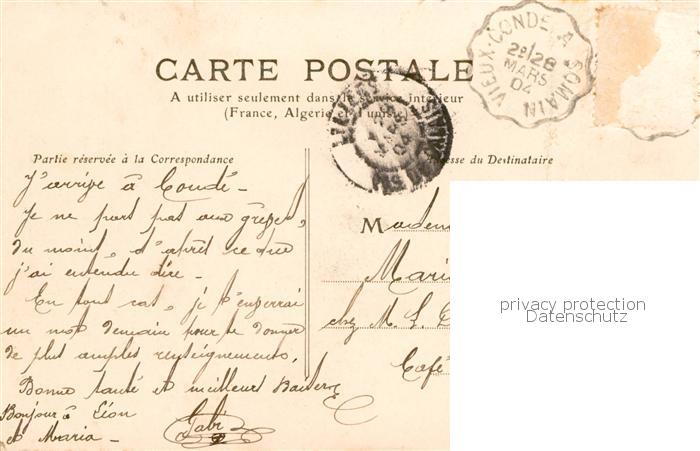 CARTE POSTALE
A utiliser seulement dans le service intérieur
(France, Algerie et Tunisie)
VIEUX-CONDE A SOMAIN
2e/28
MARS
04
Partie réservée à la Correspondance
Adresse du Destinataire
J'arrive à Condé -
Je ne part pas aux grèves,
du moins, d'après ce que
j'ai entendu dire -
En tout cas, je t'enverrai
un mot demain pour te donner
de plus amples renseignements.
Bonne santé et meilleurs Baisers
Bonjour à Léon
et Maria -
Gabi
Madem
Mari
chez M. L. D
Café
privacy protection
Datenschutz